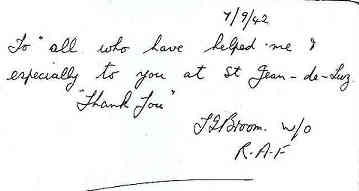 7/9/42
To all who have helped me &
especially to you at St Jean-de-Luz.
"Thank You"
T G Broom. W/O
R.A.F